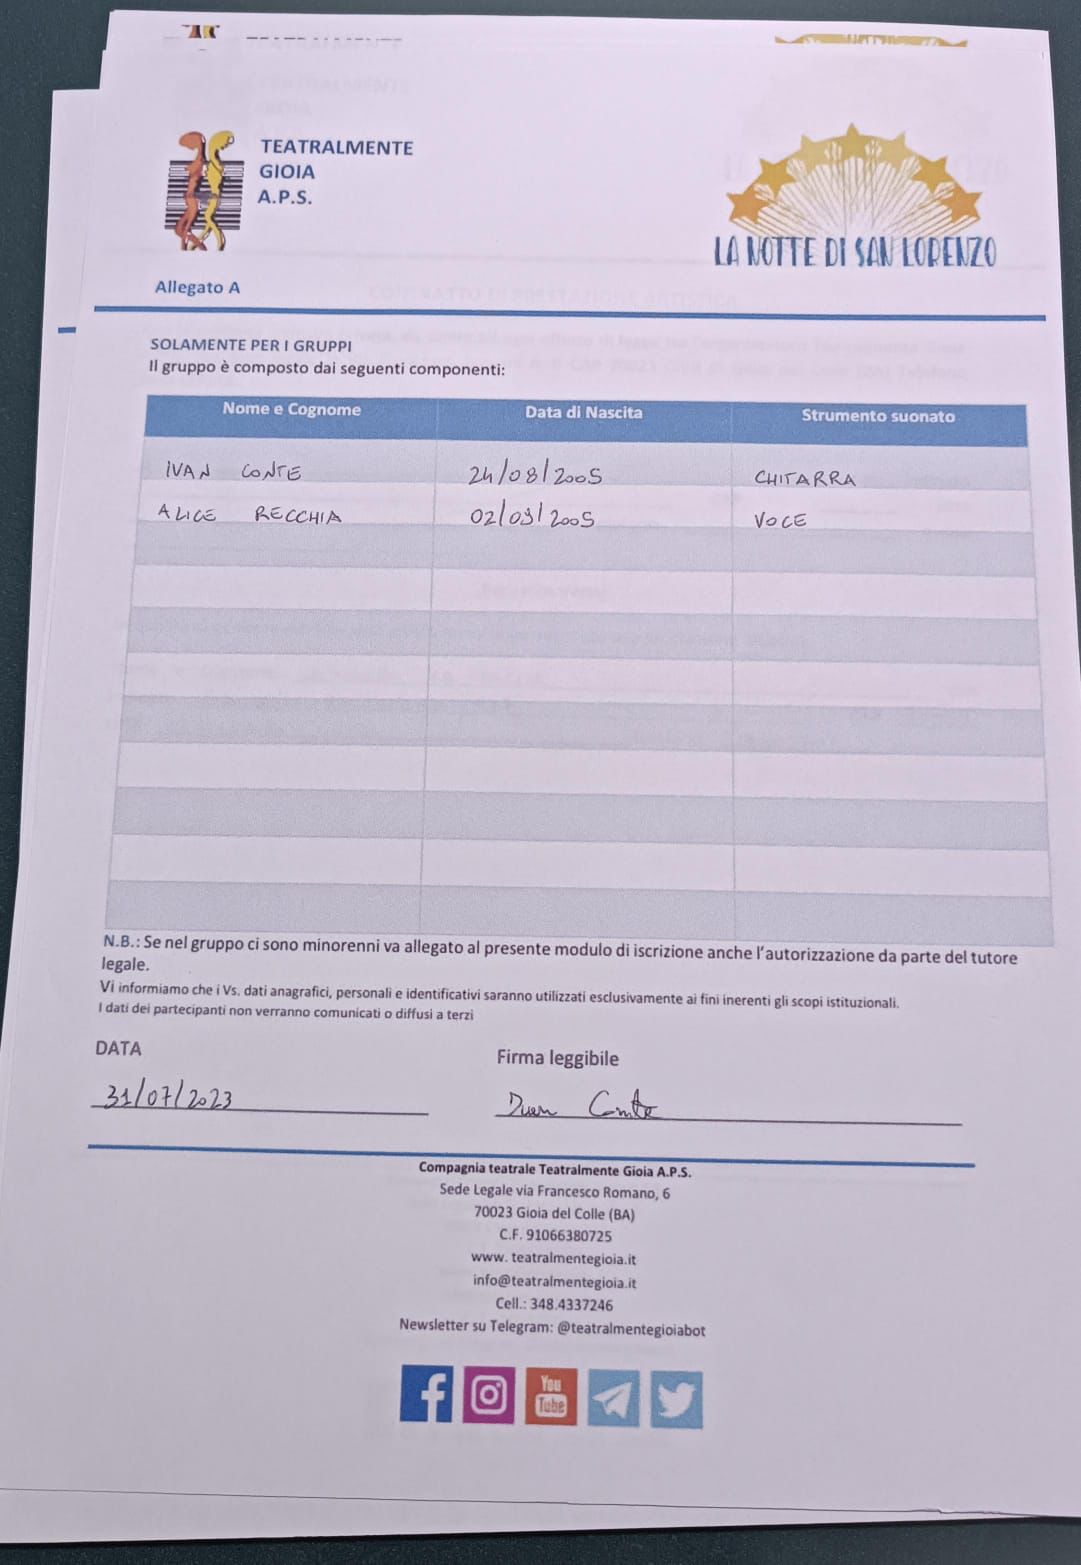 TEATRALMENTE
GIOIA
A.P.S.
LA NOTTE DI SAN LORENZO
Allegato A
SOLAMENTE PER I GRUPPI
Il gruppo è composto dai seguenti componenti:
Nome e Cognome Data di Nascita Strumento suonato
IVAN CONTE 24/08/2005 CHITARRA
ALICE RECCHIA 02/09/2005 VOCE
N.B.: Se nel gruppo ci sono minorenni va allegato al presente modulo di iscrizione anche l'autorizzazione da parte del tutore
legale.
Vi informiamo che i Vs. dati anagrafici, personali e identificativi saranno utilizzati esclusivamente ai fini inerenti gli scopi istituzionali.
I dati dei partecipanti non verranno comunicati o diffusi a terzi
DATA Firma leggibile
31/07/2023 Ivan Conte
Compagnia teatrale Teatralmente Gioia A.P.S.
Sede Legale via Francesco Romano, 6
70023 Gioia del Colle (BA)
C.F. 91066380725
www. teatralmentegioia.it
info@teatralmentegioia.it
Cell.: 348.4337246
Newsletter su Telegram: @teatralmentegioiabot
You
Tube